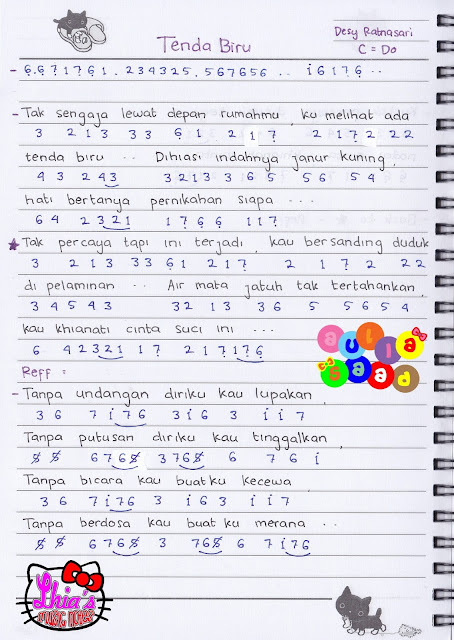 Tenda Biru
Desy Ratnasari
C = Do
- 6̣.6̣7̣1761̣.234325.567656 .. i̇6176 ..
- Tak sengaja lewat depan rumahmu, ku melihat ada
3 2 1 3 3 3 6̣ 1 2 1 7̣ 2 1 7̣ 2 2 2
tenda biru .. Dihiasi indahnya janur kuning,
4 3 2 4 3 3 2 1 3 3 1 6 5 5 6 5 4
hati bertanya pernikahan siapa ...
6 4 2 3 2 1 1 7̣ 6̣ 6̣ 1 1 7̣
★ Tak percaya tapi ini terjadi, kau bersanding duduk
3 2 1 3 3 3 6̣ 1 2 1 7̣ 2 1 7̣ 2 2 2
di pelaminan .. Air mata jatuh tak tertahankan,
3 4 5 4 3 3 2 1 3 3 6 5 5 6 5 4
kau khianati cinta suci ini ...
6 4 2 3 2 1 1 7̣ 2 1 7̣ 1 7̣ 6̣
Reff :
- Tanpa undangan diriku kau lupakan,
3 6 7 i 7 6 3 i 6 3 i i 7
Tanpa putusan diriku kau tinggalkan,
5̸ 5̸ 6 7 6 5̸ 3 7 6 5̸ 6 7 6 i
Tanpa bicara kau buatku kecewa,
3 6 7 i 7 6 3 i 6 3 i i 7
Tanpa berdosa kau buat ku merana ..
5̸ 5̸ 6 7 6 5̸ 3 7 6 5̸ 6 7 i 7 6
aulia
saad
Lhia's